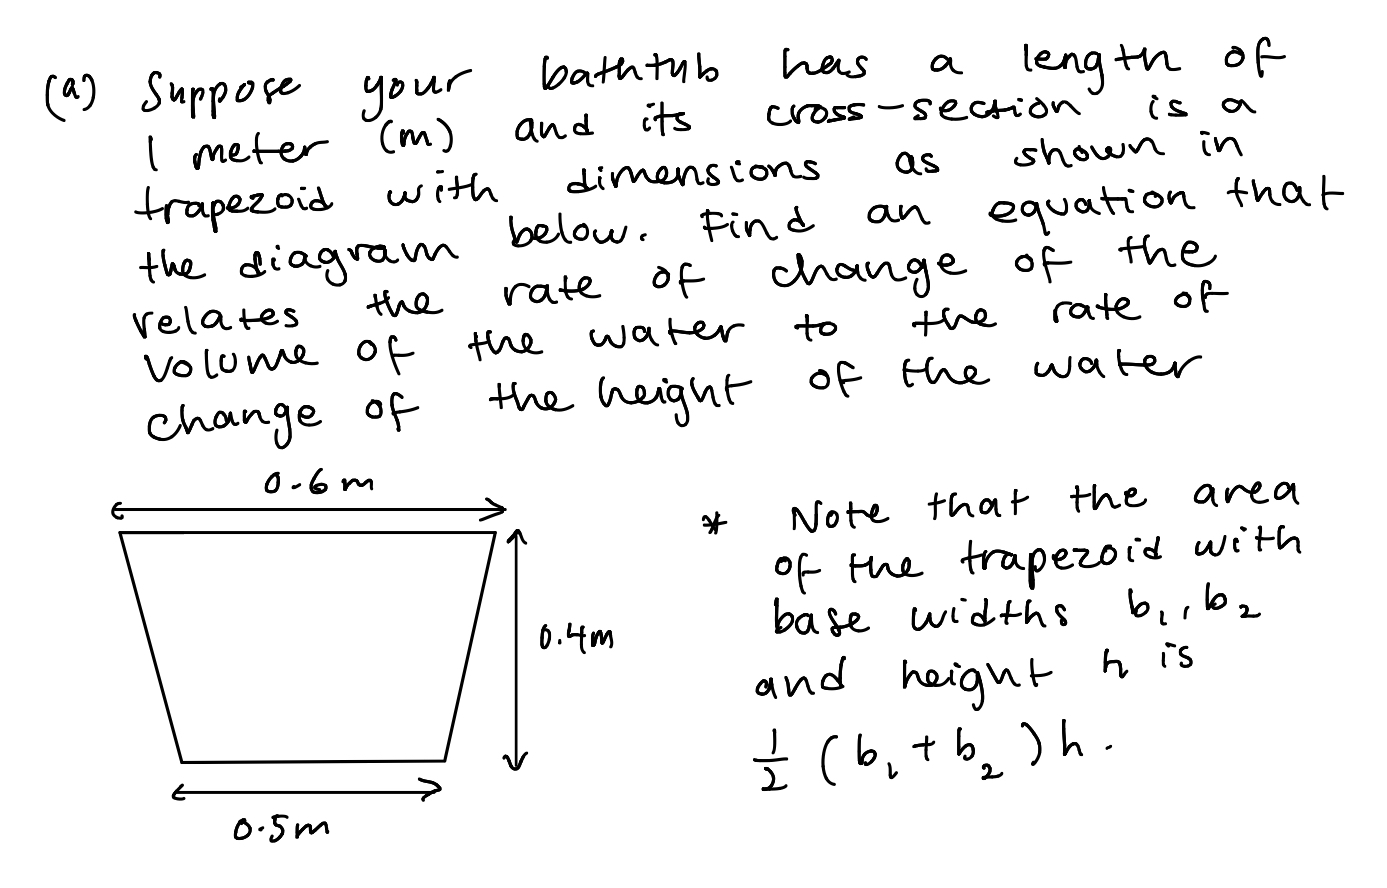 (a) Suppose your bathtub has a length of
1 meter (m) and its cross-section is a
trapezoid with dimensions as shown in
the diagram below. Find an equation that
relates the rate of change of the
volume of the water to the rate of
change of the height of the water
0.6m
0.4m
0.5m
* Note that the area
of the trapezoid with
base widths b₁, b₂
and height h is
1/2 (b₁ + b₂)h.